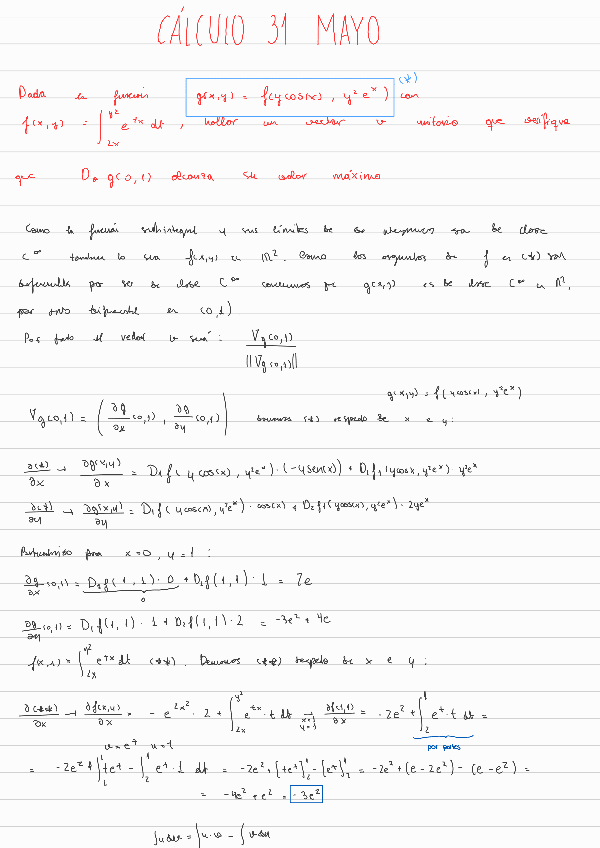 CÁLCULO 31 MAYO
Dada la función g(x,y) = f(y cos(x), y² eˣ) (*) con
f(x,y) = ∫_{2x}^{y²} e^{tx} dt , hallar un vector v unitario que verifique
que D_v g(0,1) alcanza su valor máximo
Como la función subintegral y sus límites de son de clase
C^∞ también lo sea f(x,y) en ℝ². Como los argumentos de f en (*) son
diferenciables por ser de clase C^∞ concluimos que g(x,y) es de clase C^∞ en ℝ²,
por diferencial en (0,1)
Por tanto el vector v será: ∇g(0,1) / ||∇g(0,1)||
g(x,y) = f(y cos(x), y²eˣ)
∇g(0,1) = (∂g/∂x (0,1), ∂g/∂y (0,1)) (*) respecto de x e y:
∂(*)/∂x → ∂g(x,y)/∂x = D₁f(y cos(x), y²eˣ)·(-y sen(x)) + D₂f(y cos x, y²eˣ)·y²eˣ
∂(*)/∂y → ∂g(x,y)/∂y = D₁f(y cos(x), y²eˣ)·cos(x) + D₂f(y cos(x), y²eˣ)·2yeˣ
Particularizando para x=0, y=1:
∂g/∂x (0,1) = D₁f(1,1)·0 + D₂f(1,1)·1 = 2e
0
∂g/∂y (0,1) = D₁f(1,1)·1 + D₂f(1,1)·2 = -3e² + 4e
f(x,y) = ∫_{2x}^{y²} e^{tx} dt (**). Derivamos (**) respecto de x e y:
∂(**)/∂x → ∂f(x,y)/∂x = - e^{2x²}·2 + ∫_{2x}^{y²} e^{tx}·t dt → x=1 y=1 ∂f(1,1)/∂x = -2e² + ∫_2^1 e^t·t dt =
por partes
v=e^t u=t
= -2e² + [te^t]_2^1 - ∫_2^1 e^t·1 dt = -2e² + [te^t]_2^1 - [e^t]_2^1 = -2e² + (e - 2e²) - (e - e²) =
= -4e² + e² = -3e²
∫u dv = u·v - ∫v du